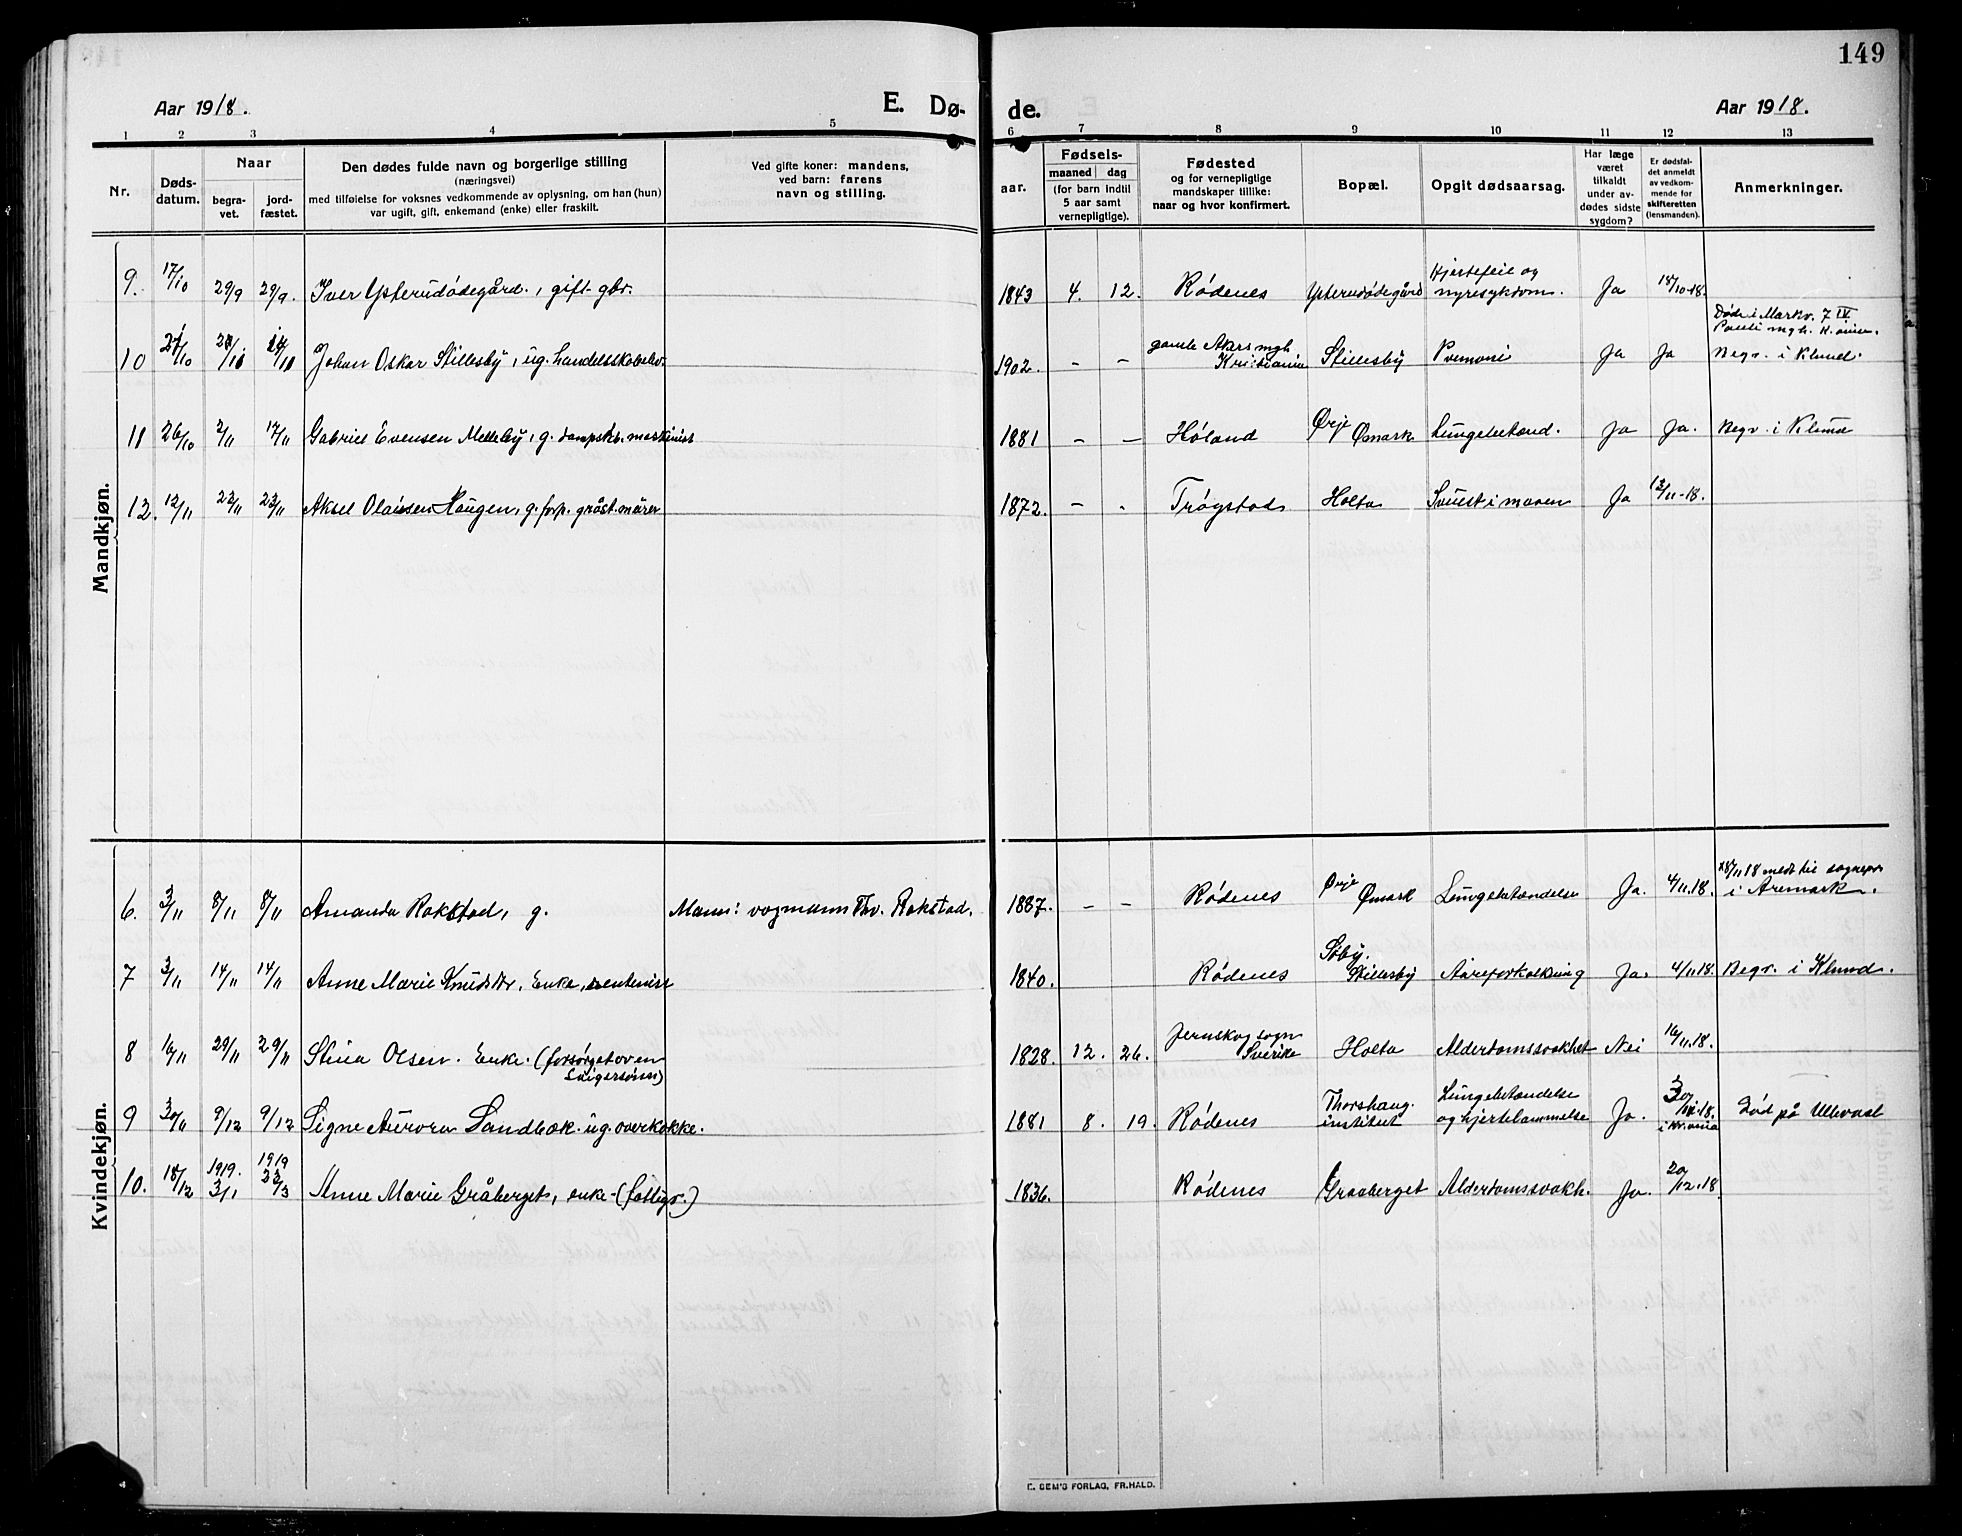 149
Aar 1918.
E. Dø-
de.
Aar 1918.
1 2 3 4 5 6 7 8 9 10 11 12 13
Nr.
Døds-
datum.
Naar
begra-
vet.
jord-
fæstet.
Den dødes fulde navn og borgerlige stilling
(næringsvei)
med tilføielse for voksnes vedkommende av oplysning, om han (hun)
var ugift, gift, enkemand (enke) eller fraskilt.
Ved gifte koner: mandens,
ved barn: farens
navn og stilling.
aar.
Fødsels-
maaned dag
(for barn indtil
5 aar samt
vernepligtige).
Fødested
og for vernepligtige
mandskaper tillike:
naar og hvor konfirmert.
Bopæl.
Opgit dødsaarsag.
Har læge
været
tilkaldt
under av-
dødes sidste
sygdom?
Er dødsfal-
det anmeldt
av vedkom-
mende for
skifteretten
(lensmanden).
Anmerkninger.
Mandkjøn.
9. 17/10 29/9 29/9. Iver Ysterudødegård., gift gbr. 1843 4. 12. Rødenes Ysterudødegård Hjertefeil og
nyresykdom. Ja 18/10-18.
10 /10 Johan Oskar Stillesby, ug. 1902. - - gamle Akers mgh
Kristiania Stillesby Ja Ja Begr. i Klund.
11 26/10 2/11 17/11 Gabriel Evensen Melleby, g. dampsk. maskinist 1881 - - Høland Ørje
Ømark Lungebetænd. Ja Ja. Begr. i Klund
12. 12/11 23/11 23/11 Aksel Olaussen Haugen, g. forp. gråst.murer 1872. - . Trøgstad Holta Svulst i maven Ja 12/11-18.
Kvindekjøn.
6. 3/11 8/11 8/11 Amanda Rakstad, g. Mann: vognmann Thv. Rakstad. 1887. - - Rødenes Ørje
Ømark Lungebetændelse Ja. 4/11.18. 18/11 18 medt til sognepr
i Aremark.
7 3/11 14/11 14/11 Anne Marie Knudsdtr, Enke, rentenist 1840. Rødenes Søby.
Stillesby Aareforkalkning Ja. 4/11.18. Begr. i Klund.
8 16/11 29/11 29/11 Stina Olsen. Enke. (forsørget av en
svigersønn) 1828. 12. 26. Jernskog sogn
Sverike Holta Alderdomssvakhet Nei 16/11.18.
9 30/11 9/12 9/12 Signe Aurora Sandbæk. ug. overkokke. 1881 8. 19. Rødenes Thorshaug.
institut Lungebetændelse
og hjertelammelse Ja. 30/11.18.
i Kr.ania Død på Ullevaal
10. 18/12 1919. 3/1 1919 23/3 Anne Marie Gråberget, enke (fattigv.) 1836. Rødenes Graaberget Alderdomssvakh. Ja. 20/12.18.
E. SEM'S FORLAG, FR.HALD.